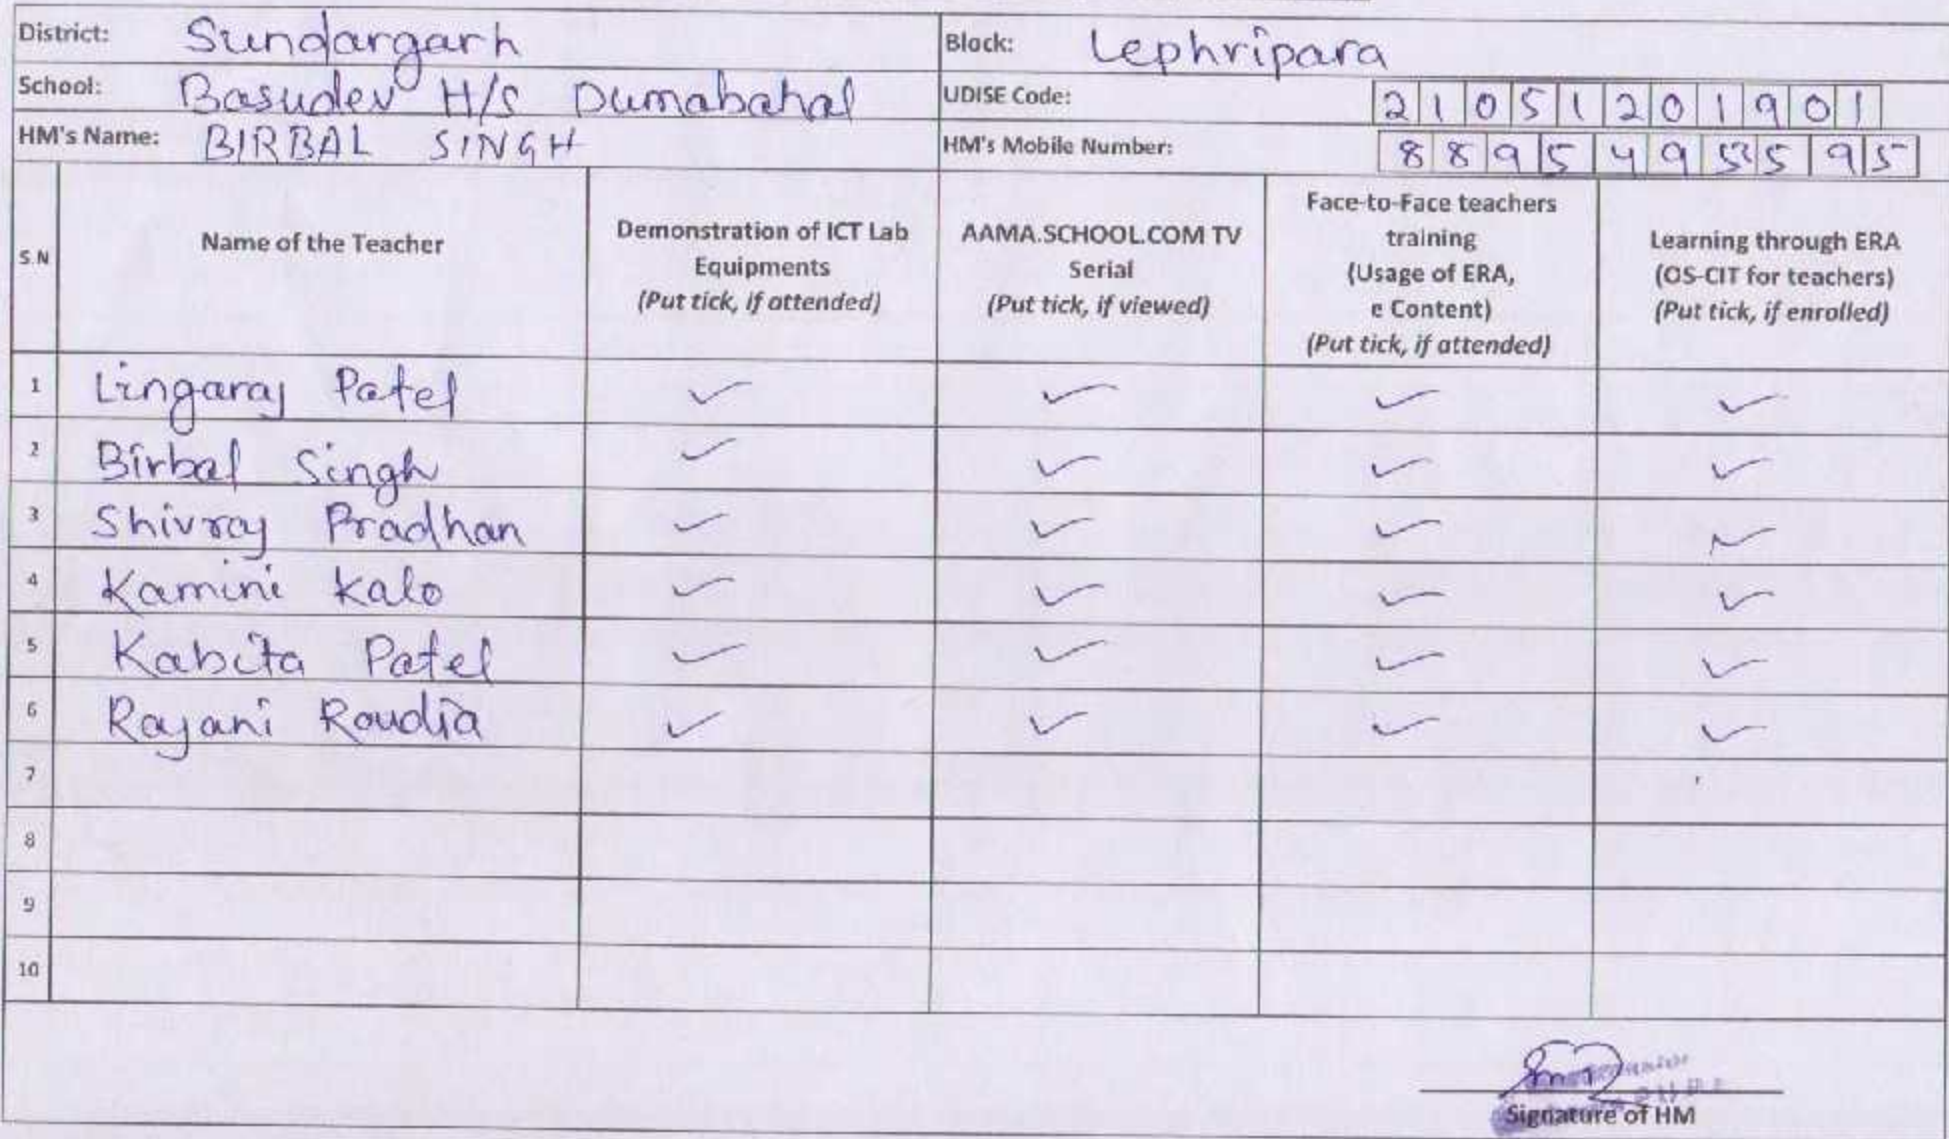 District: Sundargarh Block: Lephripara
School: Basudev H/S Dumabahal UDISE Code: 21051201901
HM's Name: BIRBAL SINGH HM's Mobile Number: 8895495595
S.N Name of the Teacher Demonstration of ICT Lab Equipments (Put tick, if attended) AAMA.SCHOOL.COM TV Serial (Put tick, if viewed) Face-to-Face teachers training (Usage of ERA, e Content) (Put tick, if attended) Learning through ERA (OS-CIT for teachers) (Put tick, if enrolled)
1 Lingaraj Patel ✓ ✓ ✓ ✓
2 Birbal Singh ✓ ✓ ✓ ✓
3 Shivraj Pradhan ✓ ✓ ✓ ✓
4 Kamini Kalo ✓ ✓ ✓ ✓
5 Kabita Patel ✓ ✓ ✓ ✓
6 Rajani Roudia ✓ ✓ ✓ ✓
7
8
9
10
Signature of HM